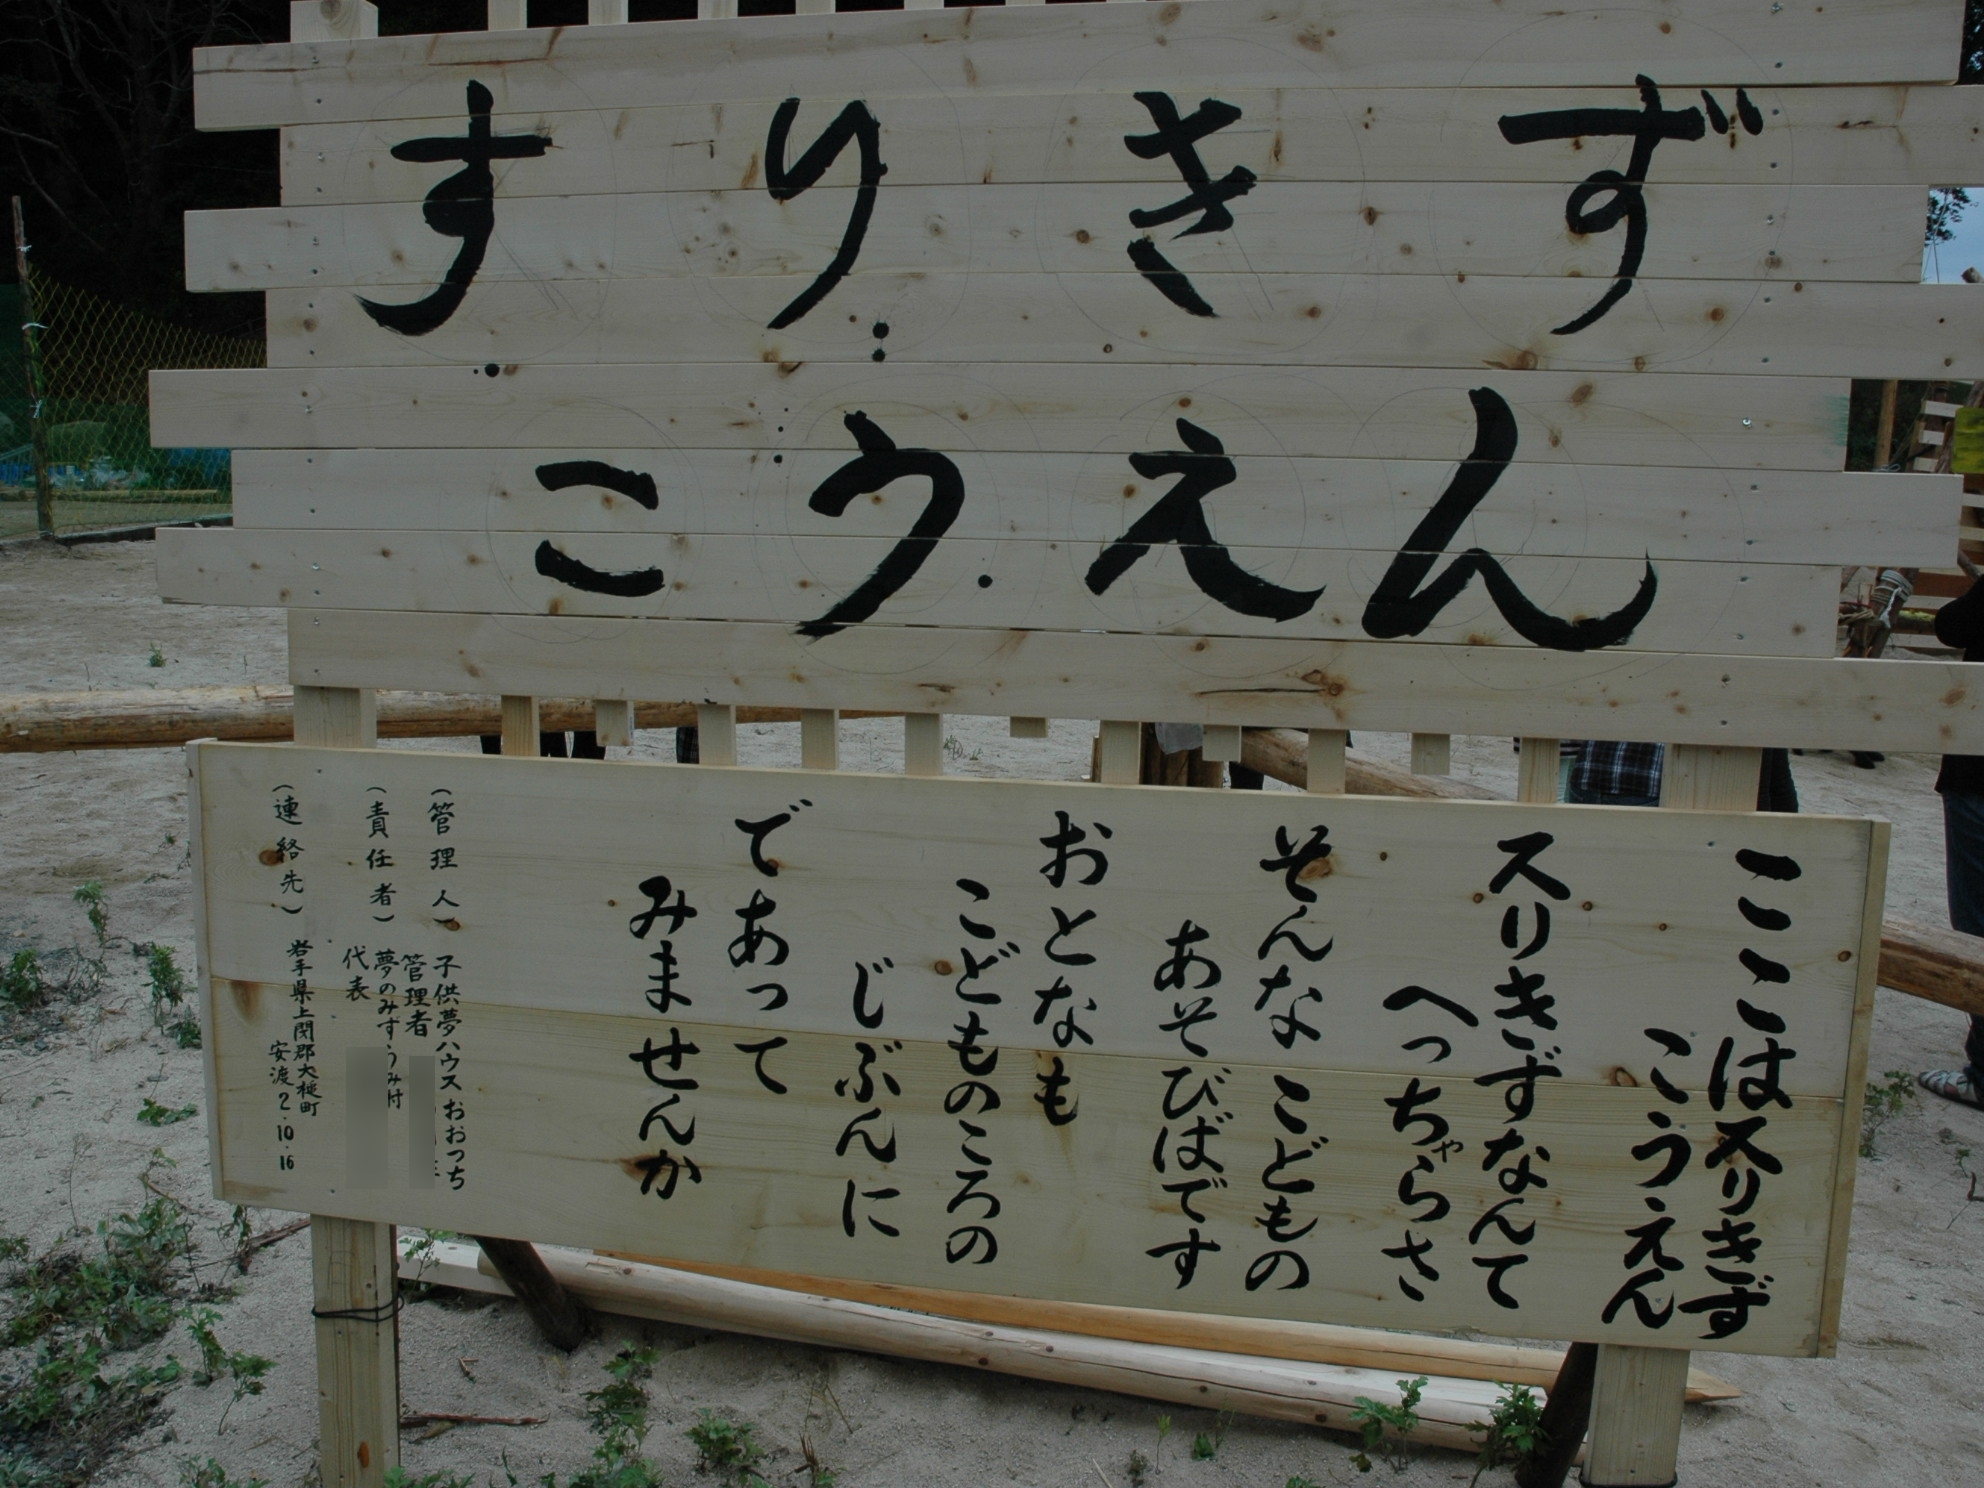 すりきず
こうえん
ここはスリきず
こうえん
スリきずなんて
へっちゃらさ
そんなこどもの
あそびばです
おとなも
こどものころの
じぶんに
であって
みませんか
(管理人) 子供夢ハウスおおつち
管理者
(責任者) 夢のみずうみ村
代表
(連絡先) 岩手県上閉郡大槌町
安渡2.10.16